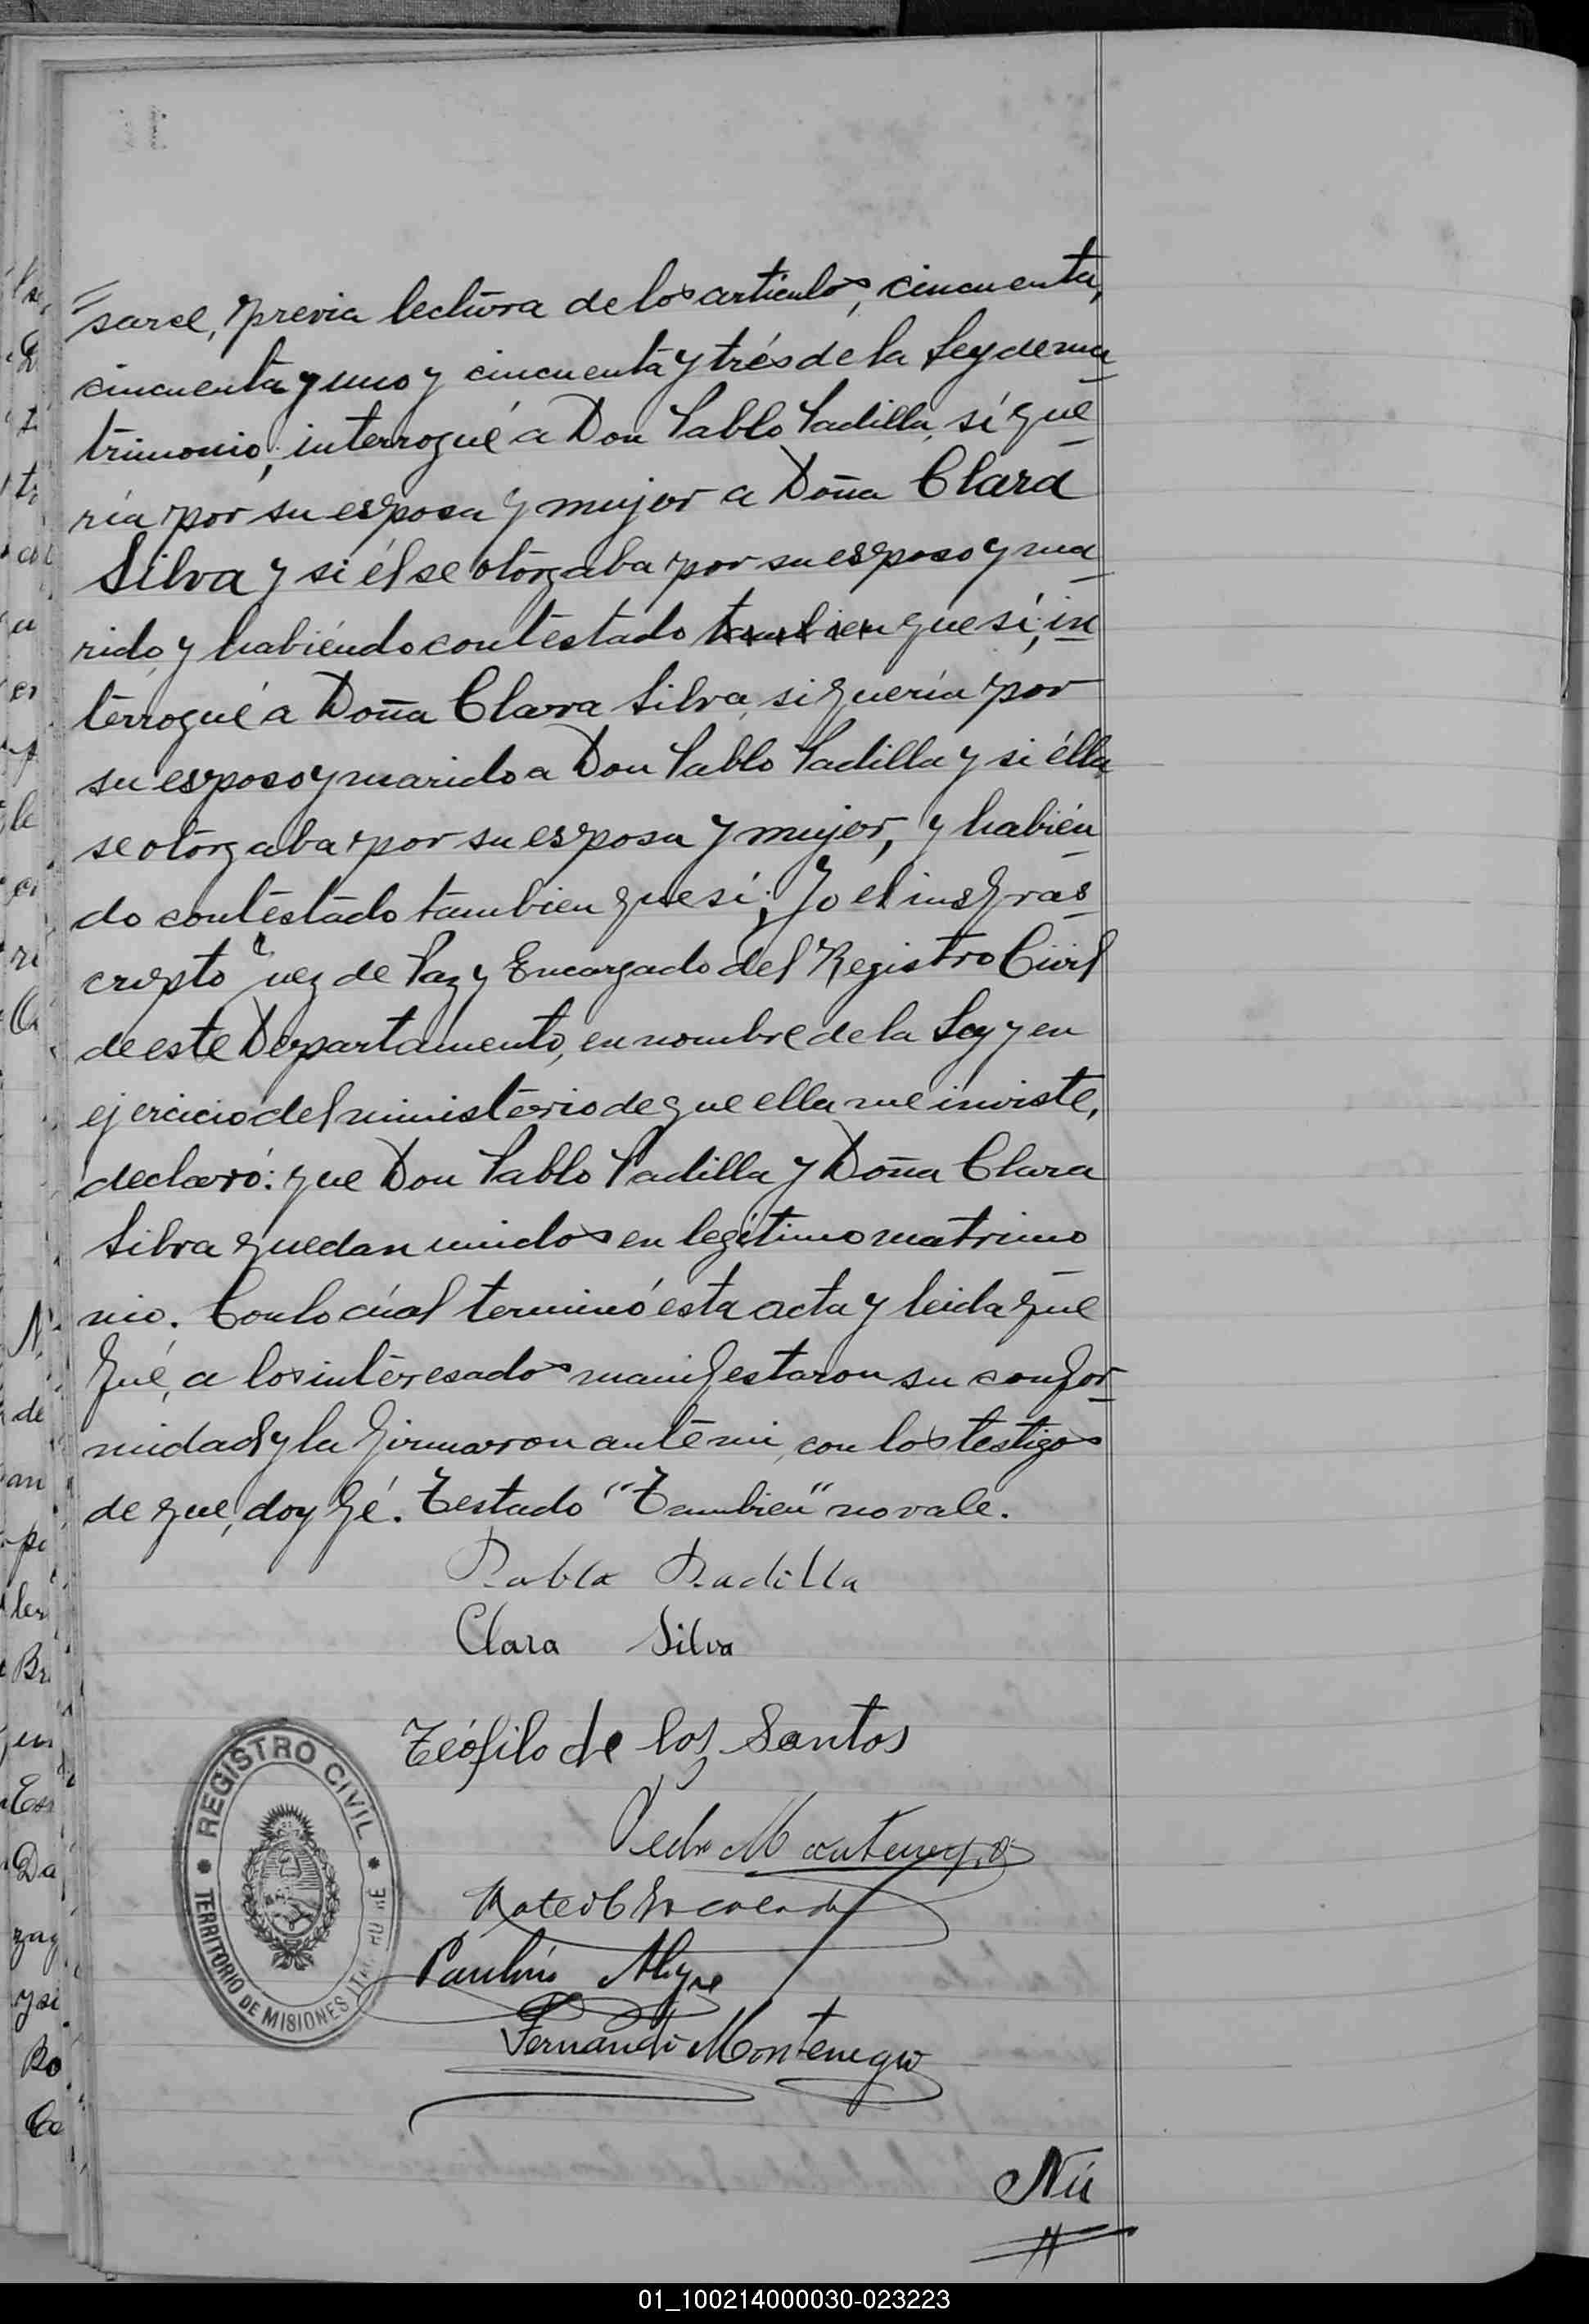 sarse, y previa lectura de los articulos, cincuenta,
cincuenta y uno y cincuenta y trés de la Ley de ma
trimonio; interrogué a Don Pablo Padilla, sí que
ría por su esposa y mujer a Doña Clara
Silva y si él se otorgaba por su esposo y ma
rido, y habiéndo contestado tambien que sí; in
terrogué a Doña Clara Silva, si quería por
su esposo y marido a Don Pablo Padilla y si élla
se otorgaba por su esposa y mujer, y habién
do contestado tambien que sí; Yo el infras
cripto Juez de Paz y Encargado del Registro Civil
de este Departamento, en nombre de la Ley y en
ejercicio del ministerio de que ella me inviste,
declaró: que Don Pablo Padilla y Doña Clara
Silva quedan unidos en legítimo matrimo
nio. Con lo cúal terminó esta acta y leida que
fué, a los interesados manifestaron su confor
midad y la firmaron ante mi, con los testigos
de que, doy fé. Testado "Tambien" no vale.
Pablo Padilla
Clara Silva
Teófilo de los Santos
Pedro Montenegro
Mateo
Paulino Alegre
Fernando Montenegro
REGISTRO CIVIL
TERRITORIO DE MISIONES
Nú
01_100214000030-023223